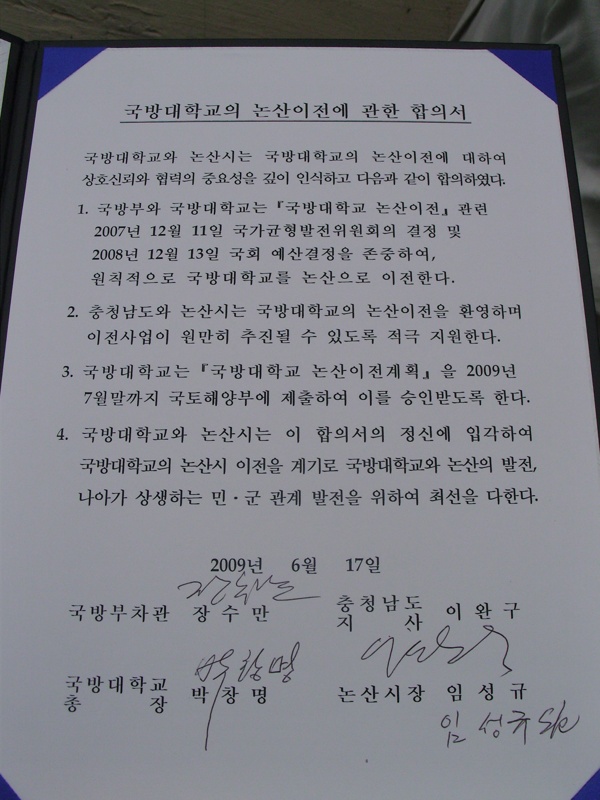 국방대학교의 논산이전에 관한 합의서
국방대학교와 논산시는 국방대학교의 논산이전에 대하여
상호신뢰와 협력의 중요성을 깊이 인식하고 다음과 같이 합의하였다.
1. 국방부와 국방대학교는『국방대학교 논산이전』관련
2007년 12월 11일 국가균형발전위원회의 결정 및
2008년 12월 13일 국회 예산결정을 존중하여,
원칙적으로 국방대학교를 논산으로 이전한다.
2. 충청남도와 논산시는 국방대학교의 논산이전을 환영하며
이전사업이 원만히 추진될 수 있도록 적극 지원한다.
3. 국방대학교는『국방대학교 논산이전계획』을 2009년
7월말까지 국토해양부에 제출하여 이를 승인받도록 한다.
4. 국방대학교와 논산시는 이 합의서의 정신에 입각하여
국방대학교의 논산시 이전을 계기로 국방대학교와 논산의 발전,
나아가 상생하는 민·군 관계 발전을 위하여 최선을 다한다.
2009년 6월 17일
국방부차관 장수만 충청남도 이완구
지 사
국방대학교 박창명 논산시장 임성규
총 장
박창명
임성규